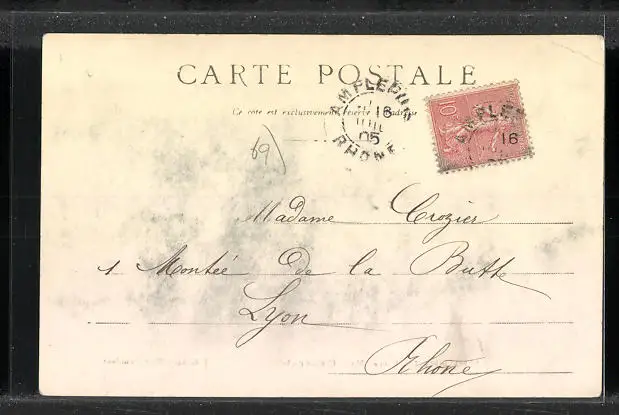 CARTE POSTALE
Ce côté est exclusivement réservé à l'adresse
AMPLEPUIS
16
05
RHONE
10
AMPLEP
16
69
Madame Crozier
1 Montée de la Butte
Lyon
Rhône